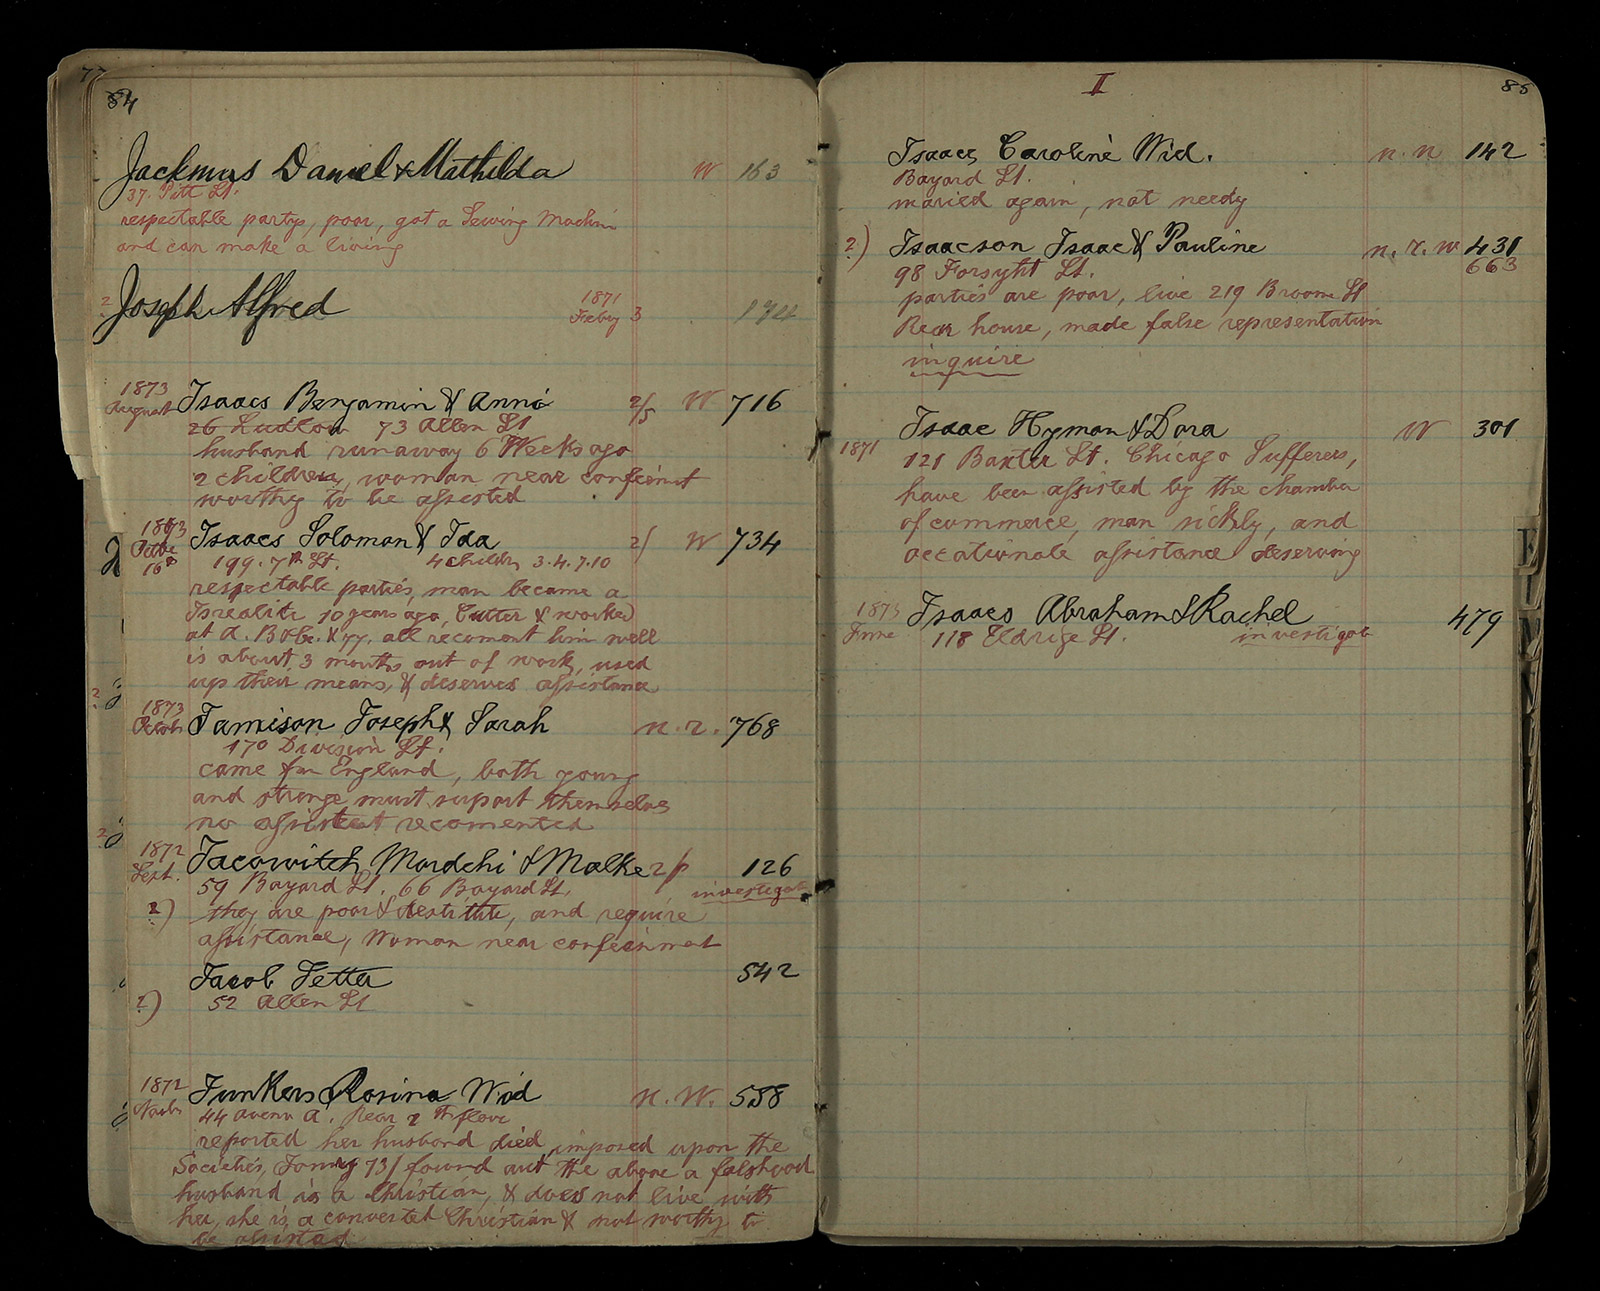 77
84
Jackmus Daniel & Mathilda W 163
37. Pitt St.
respectable party, poor, got a Sewing Machin
and can make a living
2 Joseph Alfred 1871 Feby 3 174
1873 August Isaacs Benjamin & Annie 2/5 W 716
26 Ludlow 73 Allen St
husband runaway 6 Weeks ago
2 children, woman near confeinmt
worthy to be assisted
1873 16 Isaacs Solomon & Ida 2/ W 734
199. 7th St. 4 childn 3.4.7.10
respectable parties, man became a
Israelite 10 years ago, Cutter & worked
at A. & 77. all recoment him well
is about 3 months out of work, used
up their means, & deserves assistance
1873 Octob Jamison Joseph & Sarah n.r. 768
170 Division St.
came frm England, both young
and stronge must suport themselves
no assistent recomented
1872 Sept. Jacowitch Mordchi & Malke 2/ 126
59 Bayard St. 66 Bayard St. investigat
2) they are poor & destitute, and require
assistance, Woman near confeinment
Jacob Jetta 542
2) 52 Allen St
1872 Junkers Rosina Wid n.W. 558
44 avenu A. Rear 2 th floor
reported her husband died, imposed upon the
Societies, 73/ found out the above a falshood
husband is a Christian, & does not live with
her, she is a convertet Christian & not worthy to
be assisted
I
85
Isaacs Caroline Wid. n.n 142
Bayard St.
maried again, not needy
2) Isaacson Isaac & Pauline n.r.w 431
98 Forsyht St. 663
parties are poor, live 219 Broom St
Rear house, made false representation
inquire
Isaac Hyman & Dora W 301
1871 121 Baxter St. Chicago Sufferers,
have been assisted by the chamber
of commerce, man sickly, and
occationale assistance deserving
1873 June Isaacs Abraham & Rachel 479
118 Eldrige St. investigate